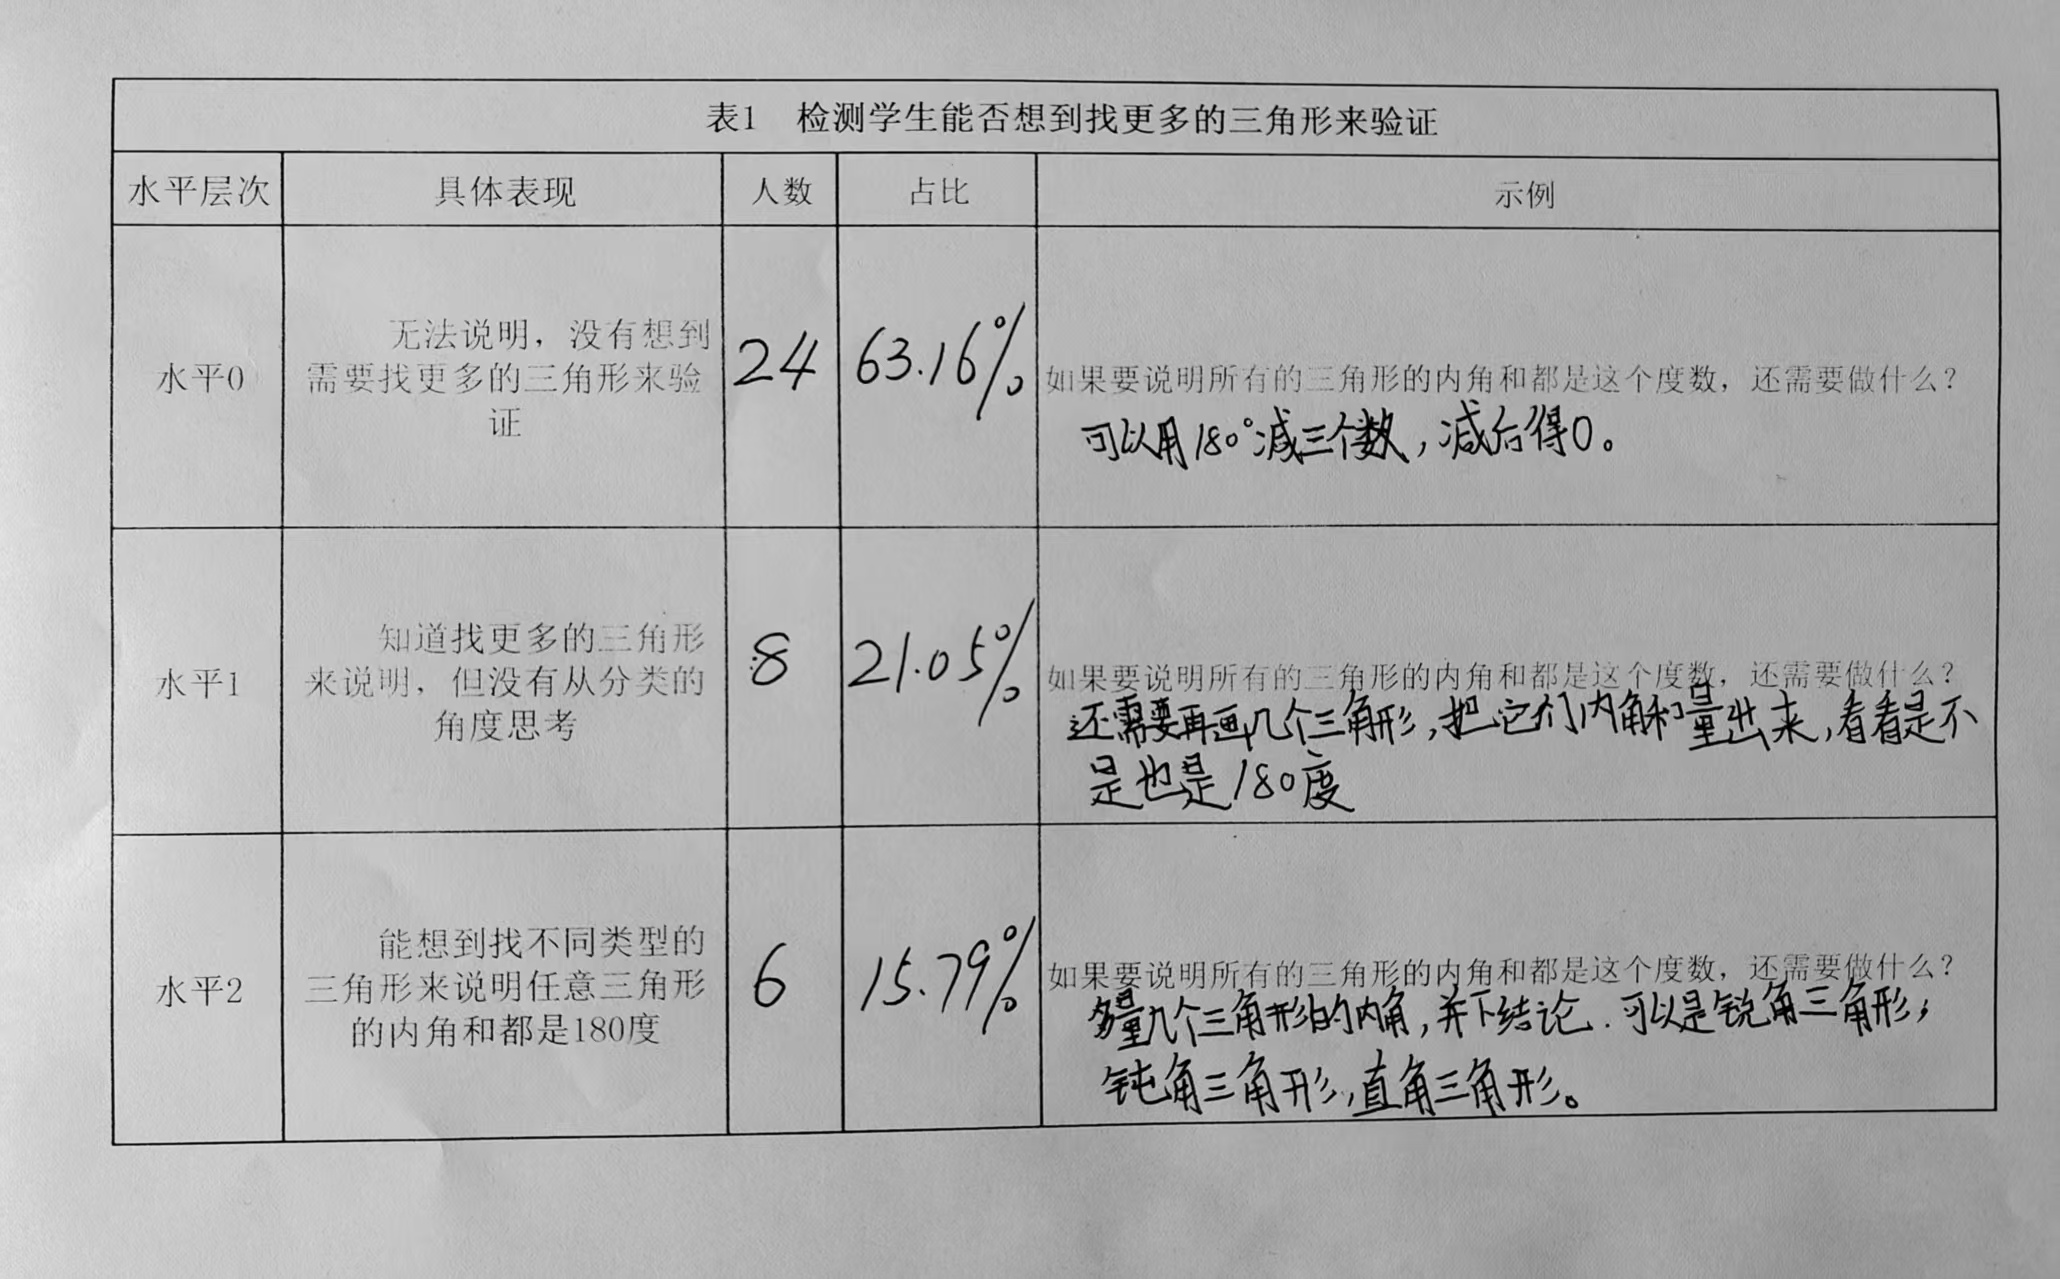 表1 检测学生能否想到找更多的三角形来验证
水平层次 具体表现 人数 占比 示例
水平0
无法说明，没有想到
需要找更多的三角形来验
证
24
63.16%
如果要说明所有的三角形的内角和都是这个度数，还需要做什么？
可以用180°减三个数，减后得0。
水平1
知道找更多的三角形
来说明，但没有从分类的
角度思考
8
21.05%
如果要说明所有的三角形的内角和都是这个度数，还需要做什么？
还需要再画几个三角形，把它们内角和量出来，看看是不
是也是180度
水平2
能想到找不同类型的
三角形来说明任意三角形
的内角和都是180度
6
15.79%
如果要说明所有的三角形的内角和都是这个度数，还需要做什么？
多量几个三角形的内角，并下结论.可以是锐角三角形，
钝角三角形，直角三角形。